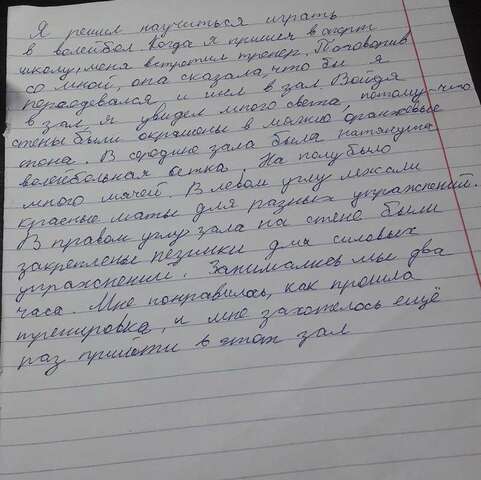 Я решил научиться играть
в волейбол. Когда я пришел в спорт
школу, меня встретил тренер. Поговорив
со мной, она сказала, что бы я
переодевался и шел в зал. Войдя
в зал, я увидел много света, потому-что
стены были окрашены в мягко оранжевые
тона. В середине зала была натянута
волейбольная сетка. На полу было
много мячей. В левом углу лежали
красные маты для разных упражнений.
В правом углу зала на стене были
закреплены резинки для силовых
упражнений. Занимались мы два
часа. Мне понравилось, как прошла
тренировка, и мне захотелось ещё
раз прийти в этот зал